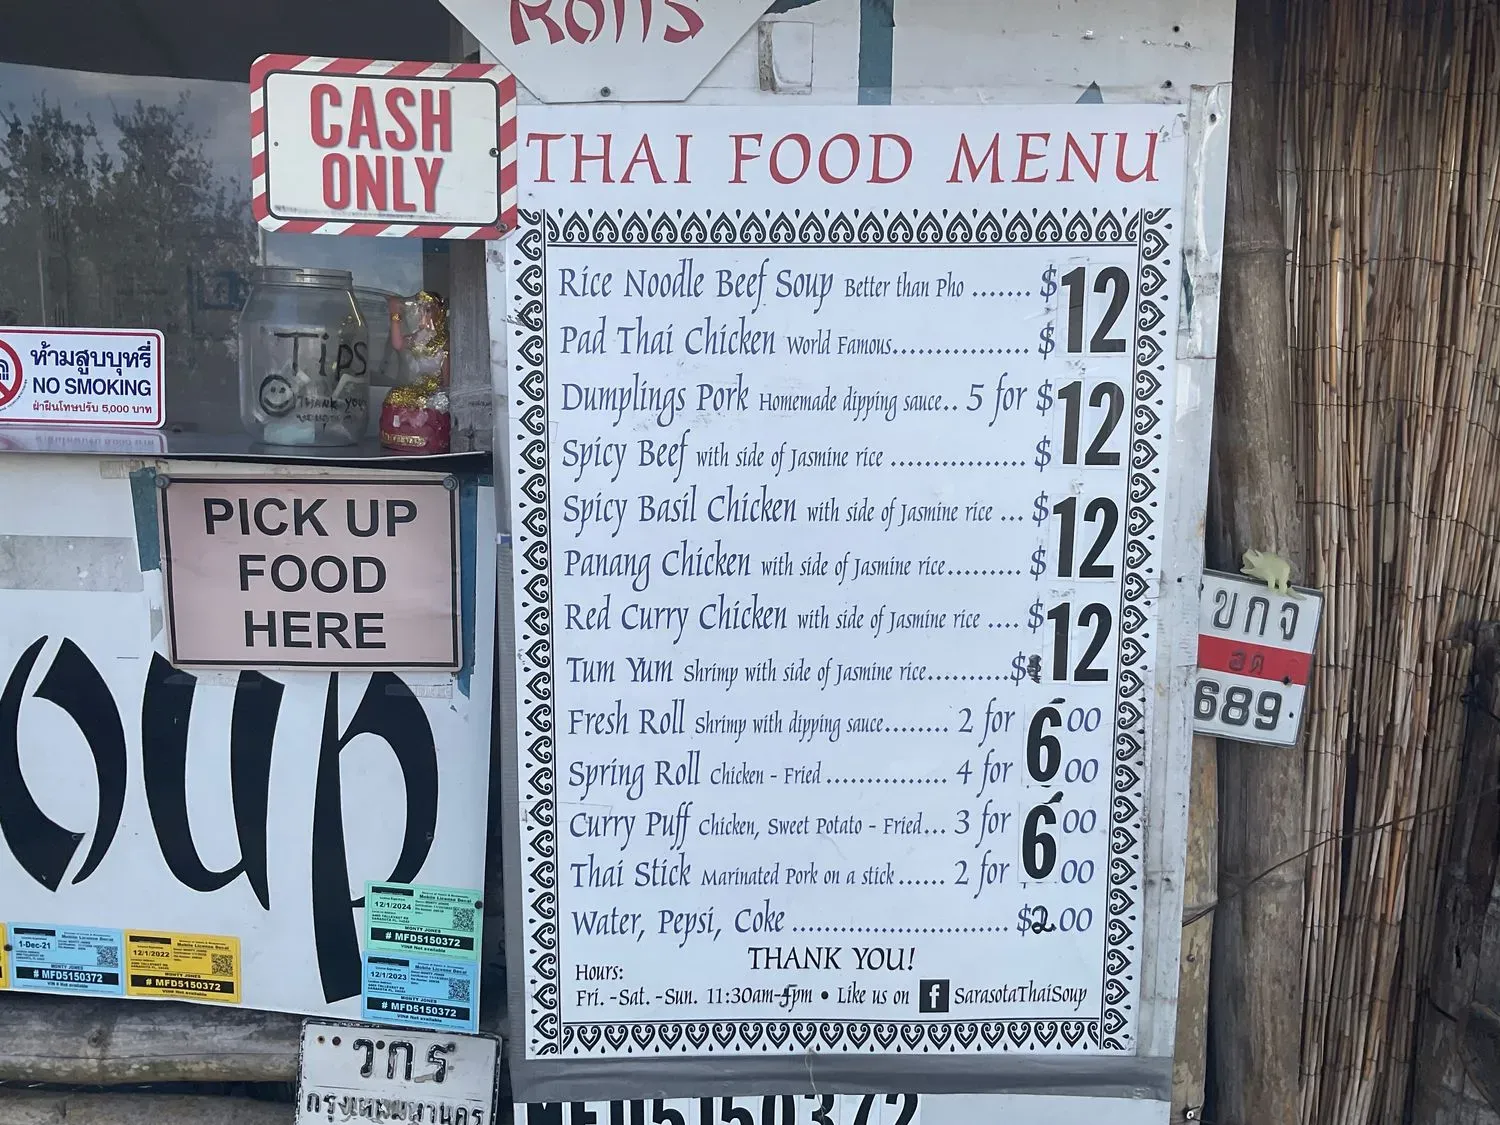 Rolls
CASH
ONLY
THAI FOOD MENU
Rice Noodle Beef Soup Better than Pho ....... $12
Pad Thai Chicken World Famous.................. $
Dumplings Pork Homemade dipping sauce.. 5 for $12
Spicy Beef with side of Jasmine rice .................. $
Spicy Basil Chicken with side of Jasmine rice ... $12
Panang Chicken with side of Jasmine rice.......... $
Red Curry Chicken with side of Jasmine rice .... $12
Tum Yum Shrimp with side of Jasmine rice...........$
Fresh Roll Shrimp with dipping sauce........ 2 for 6.00
Spring Roll Chicken - Fried ................ 4 for .00
Curry Puff Chicken, Sweet Potato - Fried... 3 for 6.00
Thai Stick Marinated Pork on a stick...... 2 for .00
Water, Pepsi, Coke ............................ $2.00
THANK YOU!
Hours:
Fri. -Sat. -Sun. 11:30am-5pm • Like us on f SarasotaThaiSoup
Tips
THANK YOU
ห้ามสูบบุหรี่
NO SMOKING
ฝ่าฝืนโทษปรับ 5,000 บาท
PICK UP
FOOD
HERE
oup
ขกจ
689
12/1/2024
Mobile License Decal
MONTY JONES
# MFD5150372
VIN# Not available
1-Dec-21
Mobile License Decal
MONTY JONES
# MFD5150372
VIN # Not available
12/1/2022
Mobile License Decal
MONTY JONES
# MFD5150372
VIN# Not available
12/1/2023
Mobile License Decal
MONTY JONES
# MFD5150372
VIN# Not available
วกร
กรุงเทพมหานคร
MFD5150372